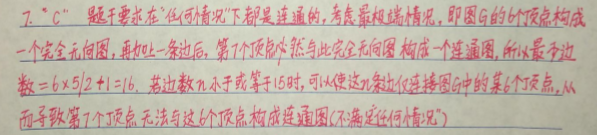 7. "C" 题干要求在“任何情况”下都是连通的，考虑最极端情况，即图G的6个顶点构成
一个完全无向图，再加上一条边后，第7个顶点必然与此完全无向图构成一个连通图，所以最少边
数=6×5/2+1=16。若边数n小于或等于15时，可以使这n条边仅连接图G中的某6个顶点，从
而导致第7个顶点无法与这6个顶点构成连通图(不满足“任何情况”)